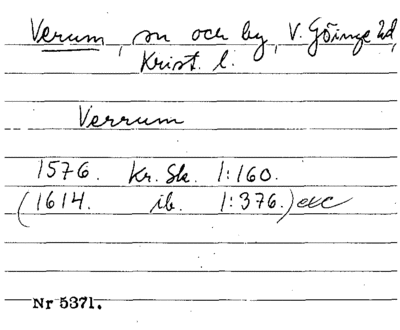 Verum, sn och by, V. Göinge hd,
Krist. l.
Verrum
1576. Kr. Sk. 1:160.
(1614. ib. 1:376.) etc
Nr 5371.